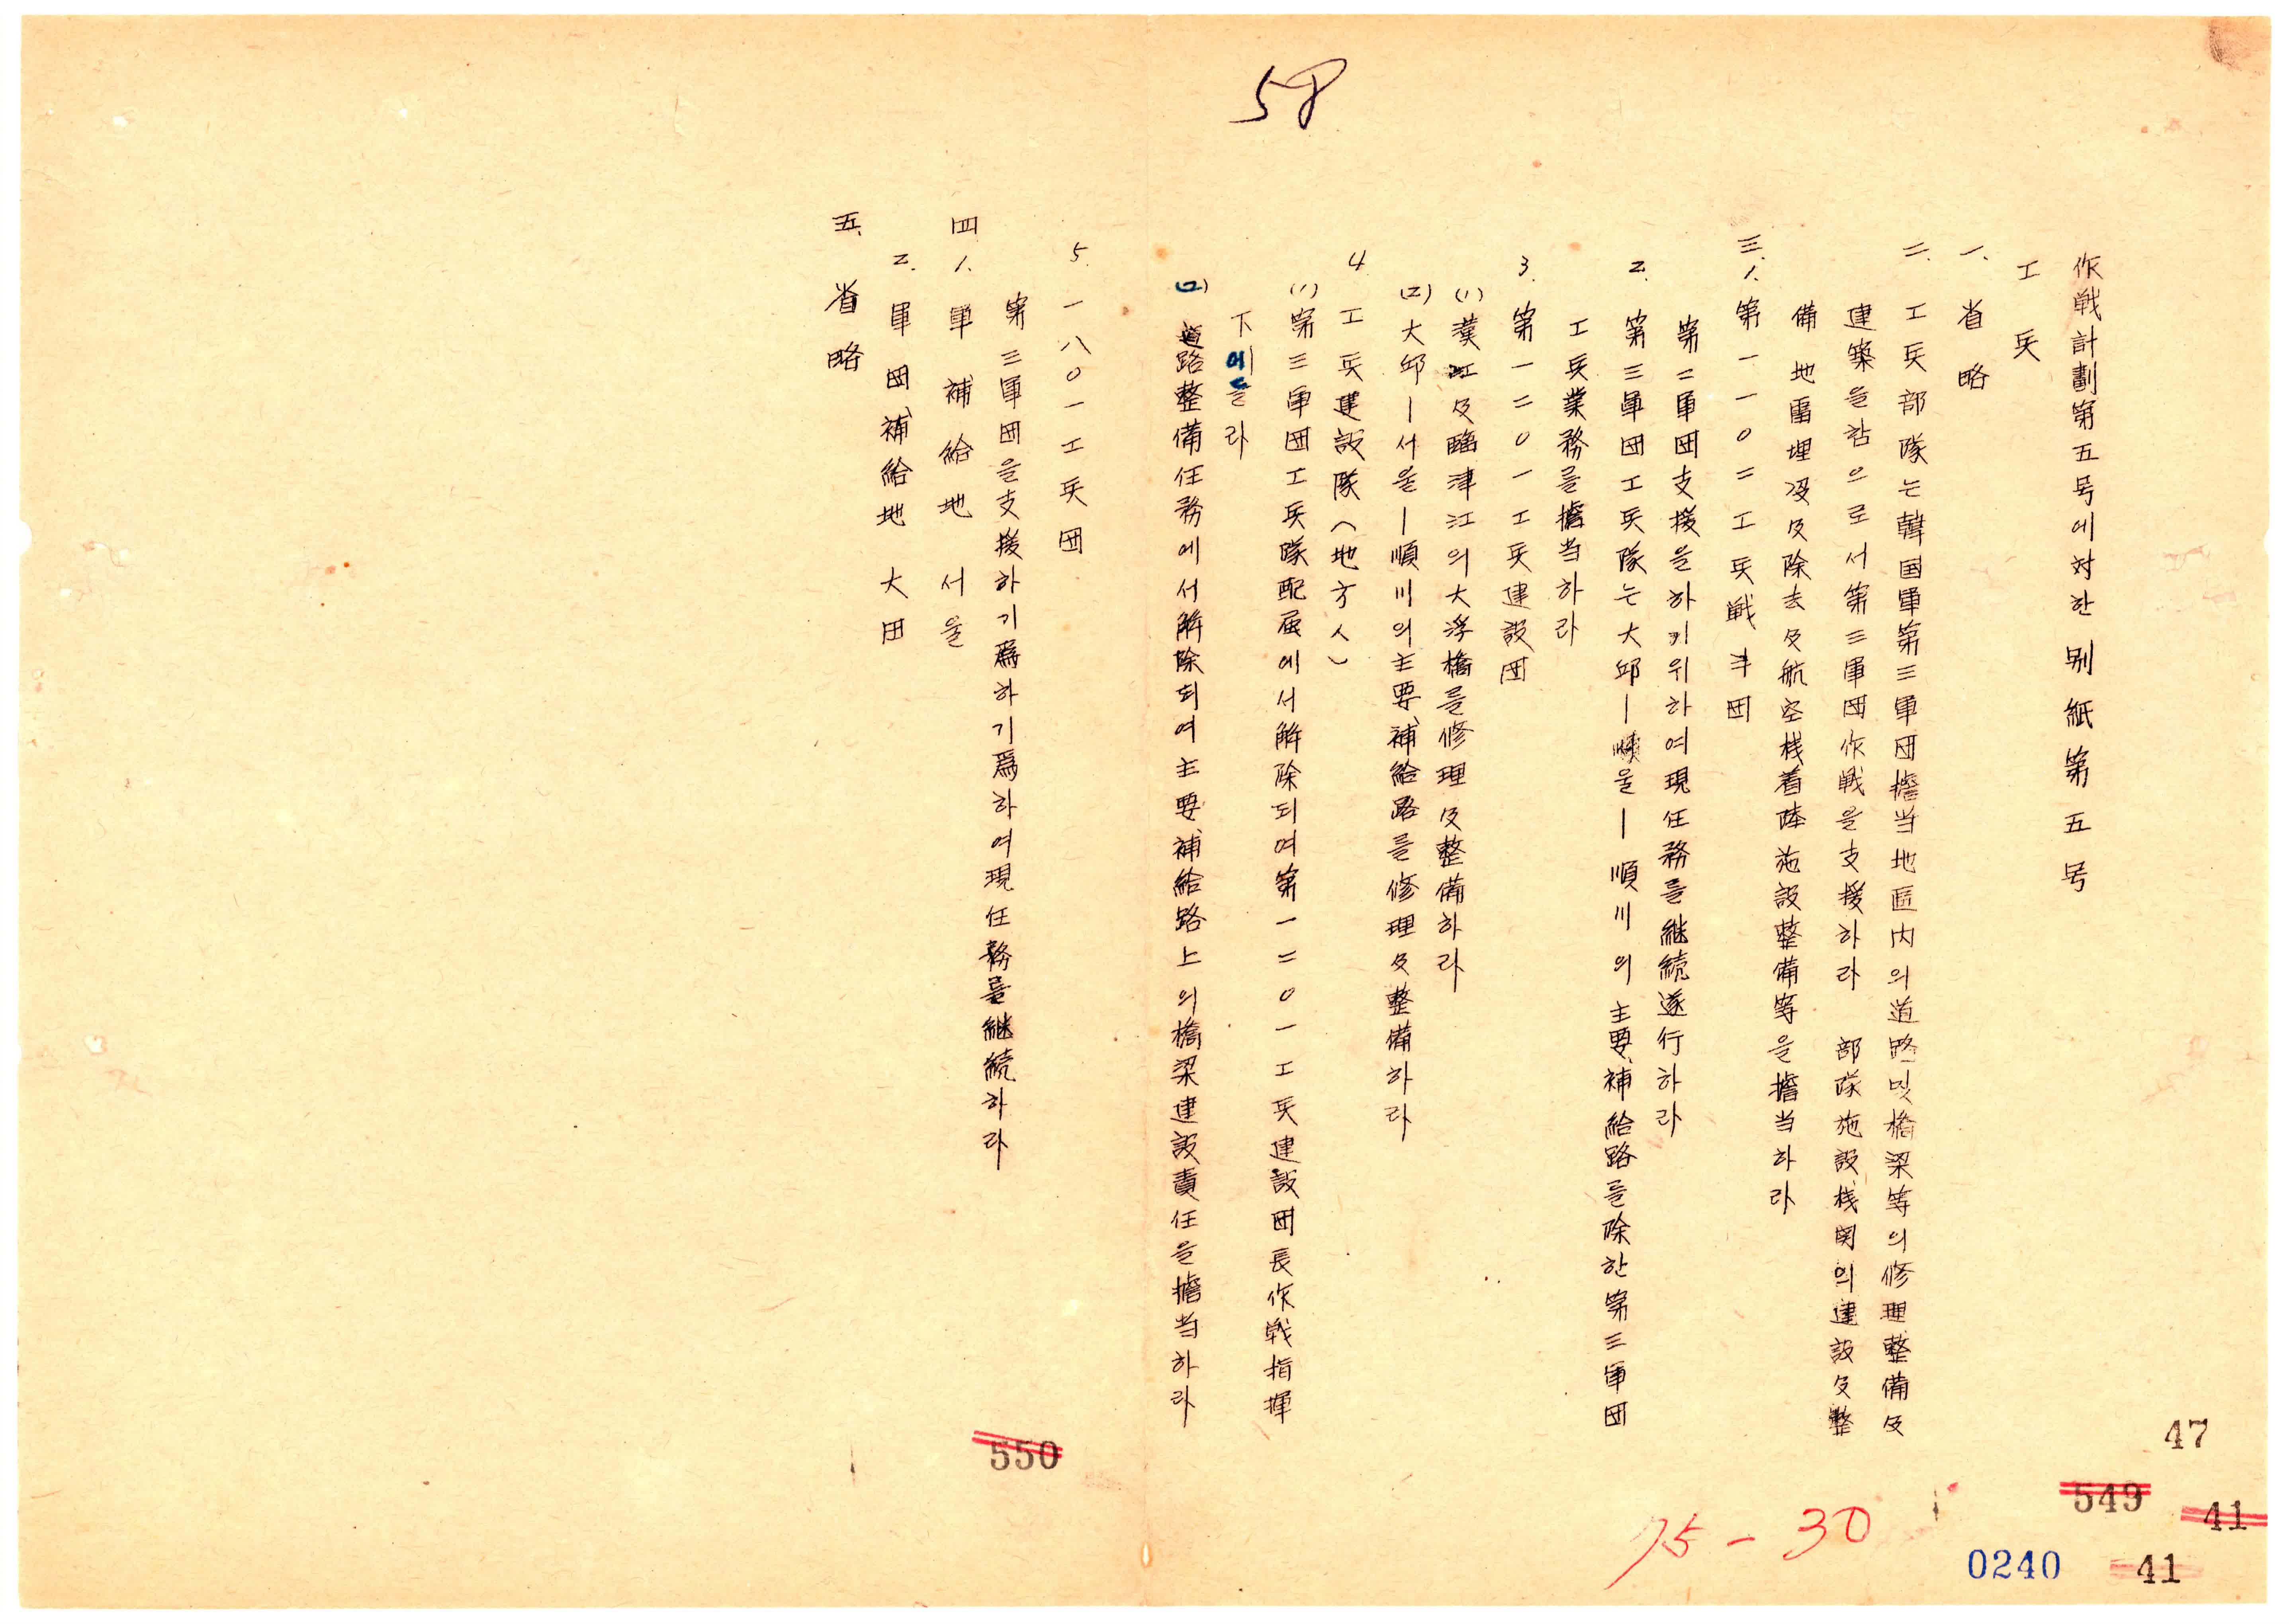 58
作戦計劃第五号에対한别紙第五号
工兵
一. 省略
二. 工兵部隊는韓国軍第三軍団擔当地區内의道路및橋梁等의修理整備及
建築을함으로서第三軍団作戦을支援하라 部隊施設栈関의建設及整
備 地雷埋没及除去及航空栈着陸施設整備等을擔当하라
三. 1. 第一一0二工兵戦斗団
第三軍団支援을하키위하여現任務를継続遂行하라
2. 第三軍団工兵隊는大邱ー서울ー順川의主要補給路를除한第三軍団
工兵業務를擔当하라
3. 第一二0一工兵建設団
(1) 漢江及臨津江의大浮橋를修理及整備하라
(2) 大邱ー서울ー順川의主要補給路를修理及整備하라
4. 工兵建設隊(地方人)
(1) 第三軍団工兵隊配属에서解除되여第一二0一工兵建設団長作戦指揮
下에들라
(2) 道路整備任務에서解除되여主要補給路上의橋梁建設責任을擔当하라
5. 一八0一工兵団
第三軍団을支援하기爲하기爲하여現任務를継続하라
四. 1. 軍補給地 서울
2. 軍団補給地 大田
五. 省略
550
47
549
41
75-30
0240
41